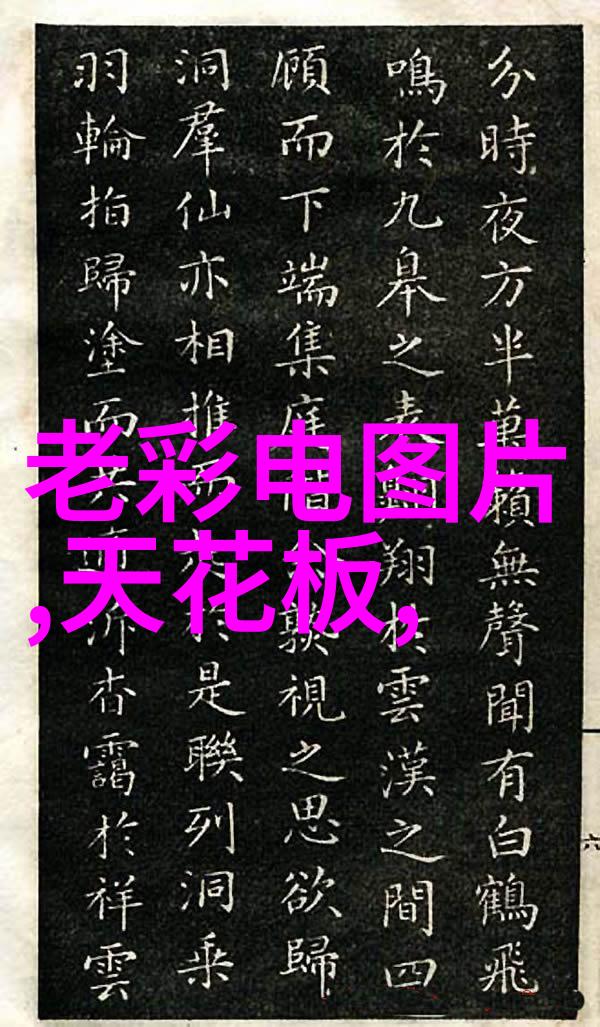 分時夜方半萬籟無聲聞有白鶴飛
鳴於九皋之表翔於雲漢之間四
顧而下端集庭視之思欲歸
洞羣仙亦相推而於是聯列洞乘
羽輪拍歸塗而共泝杳靄於祥雲
老彩电图片
,天花板,
六